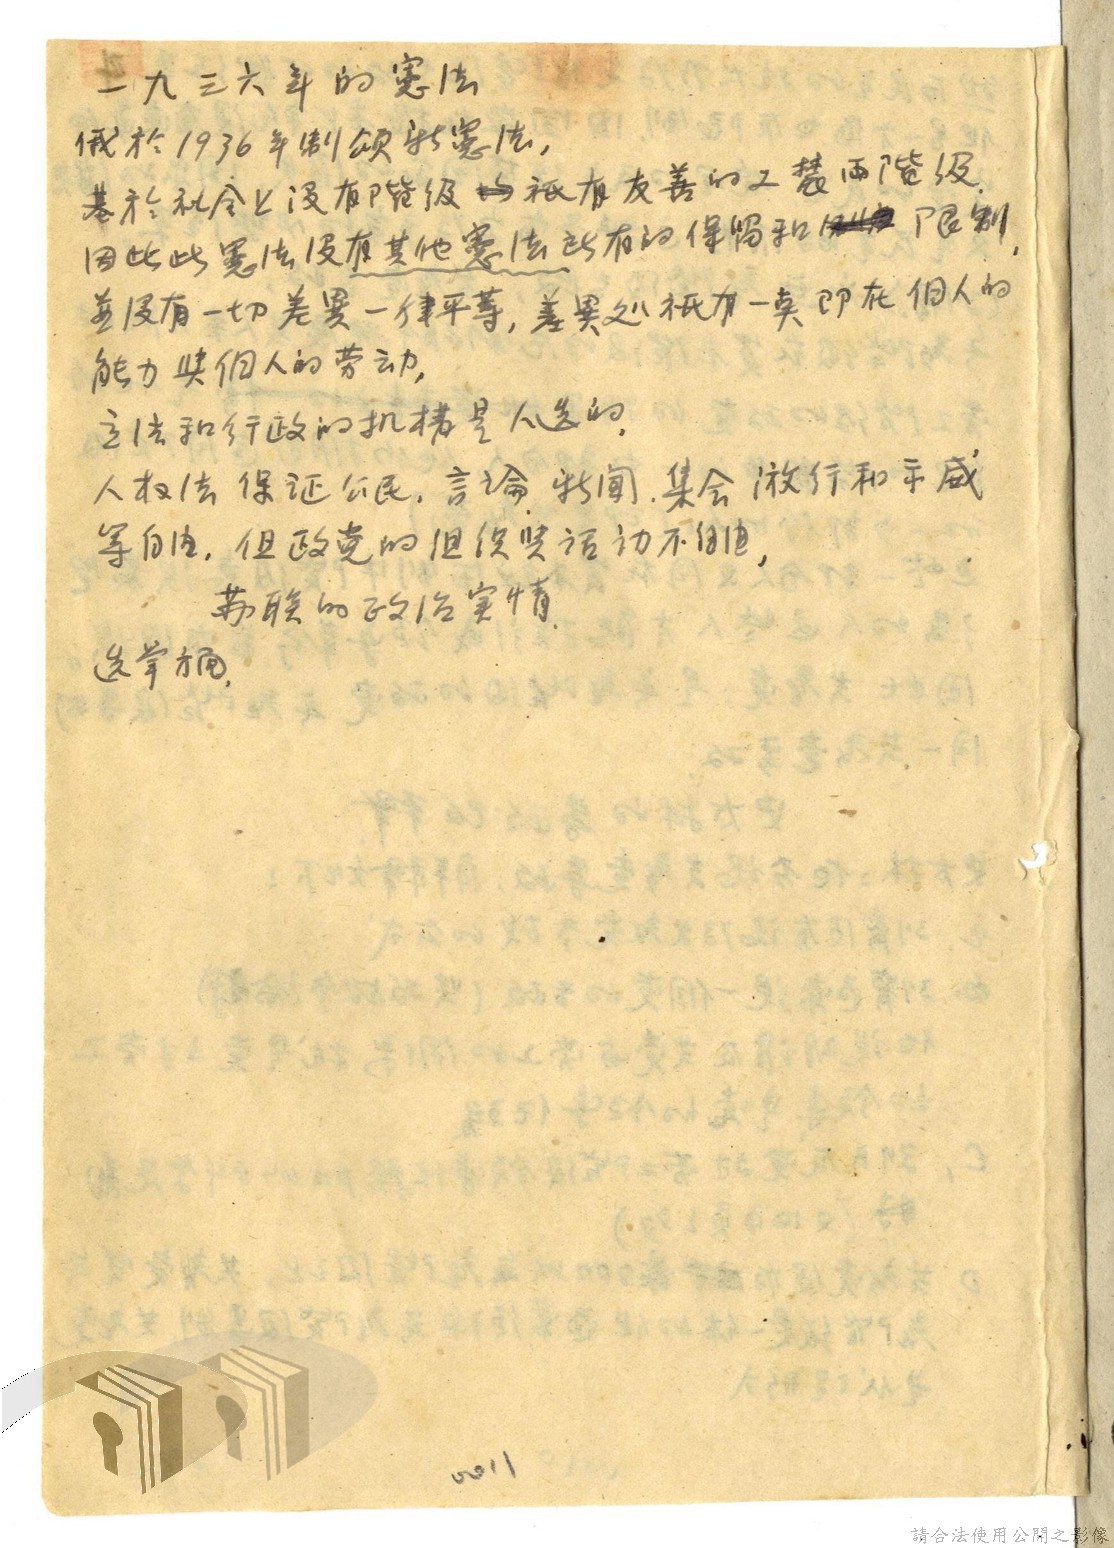 一九三六年的憲法
俄於1936年制頒新憲法,
基於社会上沒有階級 祇有友善的工農両階级.
因此此憲法沒有其他憲法所有的保畄和 限制,
並沒有一切差異一律平等,差異处祇有一奌即在個人的
能力與個人的劳动,
立法和行政的机構是人选的,
人权法保证公民,言論、新闻、集会 游行和示威
等自由,但政党的组织與活动不自由,
苏联的政治实情
选举方面,
1100
請合法使用公開之影像